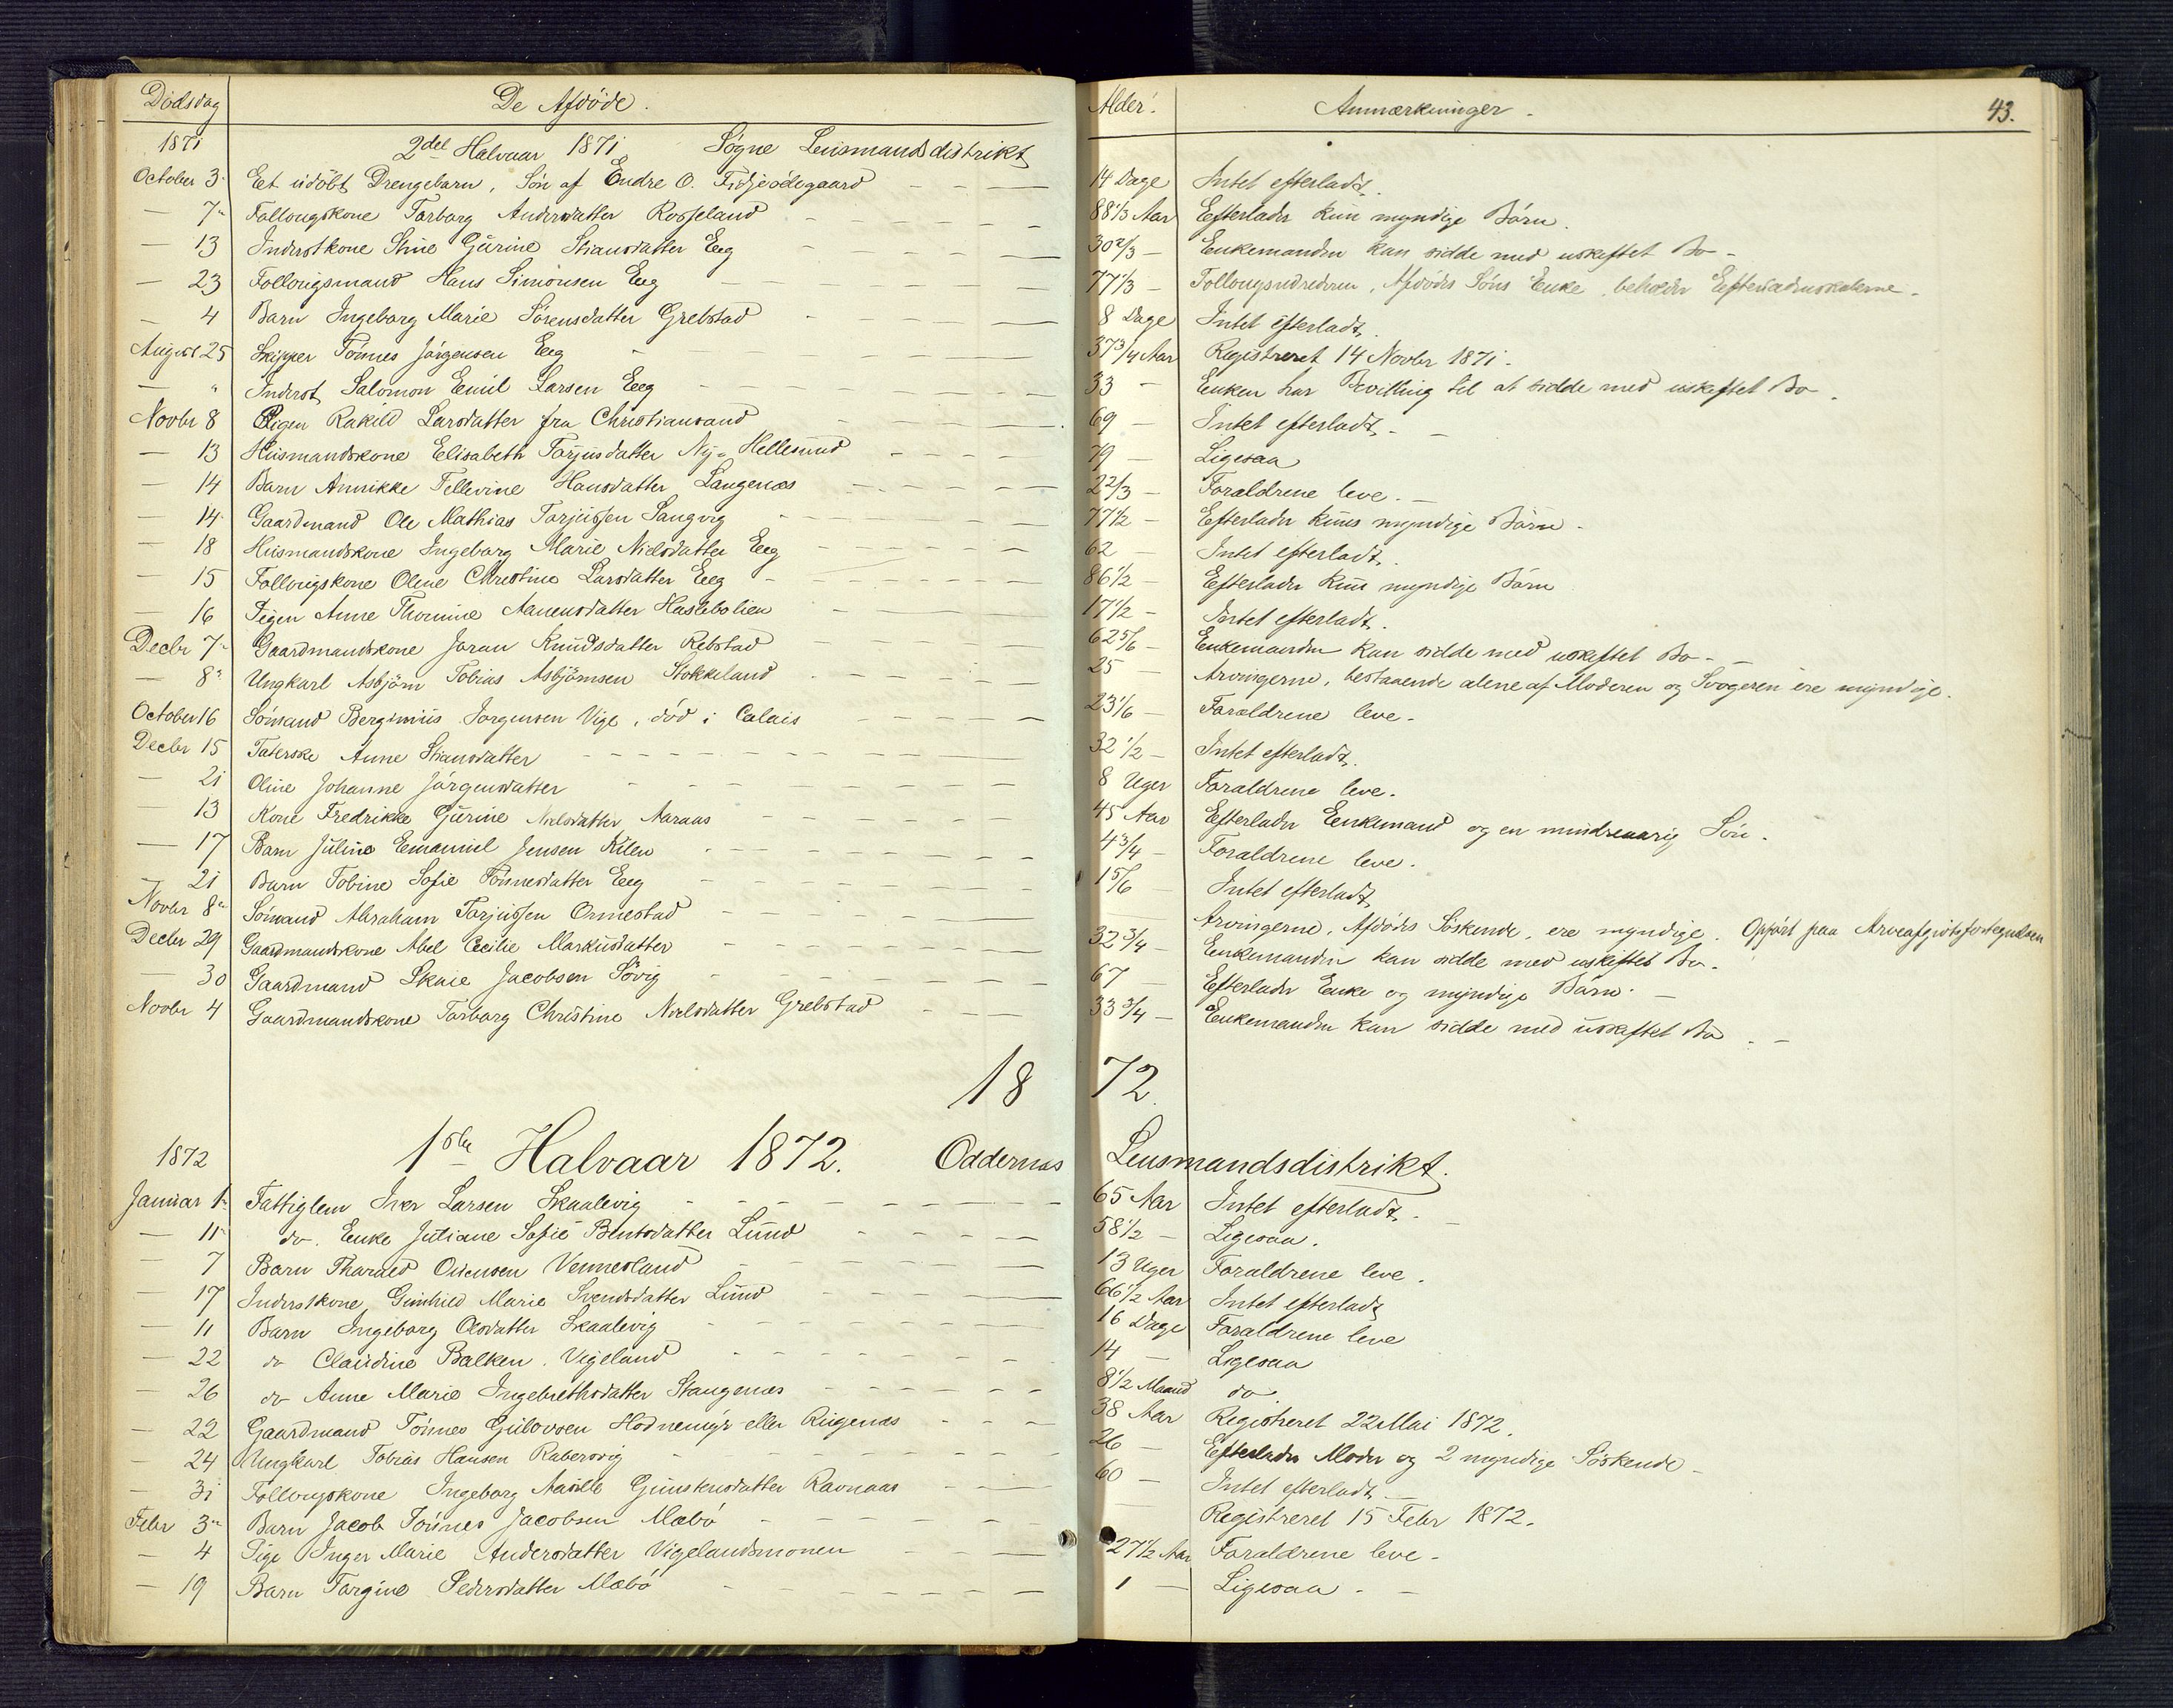 Dødsdag De Afdøde. Alder. Anmærkninger. 43.
1871 2det Halvaar 1871 Søgne Lensmandsdistrikt
October 3 Et udøbt Drengebarn, Søn af Endre O. Fidjeødegaard 14 Dage Intet efterladt.
— 7 Follougskone Tarborg Andersdatter Rosseland 88 1/3 Aar Efterlader kun myndige Børn.
— 13 Inderstkone Stine Gurine Stiansdatter Eeg 30 2/3 — Enkemanden kan sidde med uskiftet Bo —
— 23 Follougsmand Hans Simonsen Eeg 77 1/3 — Follougsudrederen, Afdødes Søns Enke, beholder Efterladenskaberne.
— 4 Barn Ingeborg Marie Sørensdatter Grebstad 8 Dage Intet efterladt.
August 25 Skipper Tønnes Jørgensen Eeg 37 3/4 Aar Registreret 14 Novbr 1871.
— " Inderst Salomon Emil Larsen Eeg 33 — Enken har Bevilling til at sidde med uskiftet Bo.
Novbr 8 Pigen Rakild Larsdatter fra Christiansand 69 — Intet efterladt. —
— 13 Husmandskone Elisabeth Torjusdatter Ny-Hellesund 79 — Ligesaa
— 14 Barn Annikke Tellevine Hansdatter Langenæs 2 2/3 — Forældrene leve. —
— 14 Gaardmand Ole Mathias Torjussen Langvig 77 1/2 — Efterlader kuns myndige Børn.
— 18 Husmandskone Ingeborg Marie Nielsdatter Eeg 62 — Intet efterladt.
— 15 Follougskone Olene Christine Larsdatter Eeg 86 1/2 — Efterlader kun myndige Børn
— 16 Pigen Anne Thomine Aanensdatter Haslebolien 17 1/2 — Intet efterladt.
Decbr 7 Gaardmandskone Joran Knudsdatter Rebstad 62 5/6 — Enkemanden kan sidde med uskiftet Bo. —
— 8 Ungkarl Asbjørn Tobias Asbjørnsen Stokkeland 25 — Arvingerne, bestaaende alene af Moderen og Svogeren ere myndige.
October 16 Sømand Berginius Jorgensen Vige, død i Calais 23 1/6 — Forældrene leve.
Decbr 15 Taterske Anne Stiansdatter 32 1/2 — Intet efterladt.
— 21 Oline Johanne Jørgensdatter 8 Uger Forældrene leve.
— 13 Kone Fredrikke Gurine Nielsdatter Aaraas 45 Aar Efterlader Enkemand og en mindreaarig Søn.
— 17 Barn Juline Emanuel Jensen Kilen 4 3/4 — Forældrene leve.
— 21 Barn Tobine Sofie Tønnesdatter Eeg 1 5/6 Intet efterladt
Novbr 8 Sømand Abraham Torjussen Ormestad Arvingerne, Afdødes Søskende, ere myndige. Opført paa Arveafgiftsfortegnelsen
Decbr 29 Gaardmandskone Abel Cecilie Markusdatter 32 3/4 — Enkemanden kan sidde med uskiftet Bo.
— 30 Gaardmand Skaie Jacobsen Søvig 67 — Efterlader Enke og myndige Børn. —
Novbr 4 Gaardmandskone Tarborg Christine Nielsdatter Grebstad 33 3/4 — Enkemanden kan sidde med uskiftet Bo. —
18 72.
1872 1ste Halvaar 1872. Oddernæs Lensmandsdistrikt.
Januar 1 Fattiglem Iver Larsen Skaalevig 65 Aar Intet efterladt. —
— 11 do. Enke Juliane Sofie Bentsdatter Lund 58 1/2 — Ligesaa.
— 7 Barn Tharald Osensen Vennesland 13 Uger Forældrene leve.
— 17 Inderstkone Gunhild Marie Svendsdatter Lund 66 1/2 Aar Intet efterladt
— 11 Barn Ingeborg Olsdatter Skaalevig 16 Dage Forældrene leve
— 22 do Claudine Balken. Vigeland 14 — Ligesaa
— 26 do Anne Marie Ingebrethsdatter Stangenæs 8 1/2 Maaned do
— 22 Gaardmand Tønnes Gulovsen Hodnemyr eller Rugenæs 38 Aar Registreret 22 Mai 1872.
— 24 Ungkarl Tobias Hansen Rabersvig 26 — Efterlader Moder og 2 myndige Søskende —
— 31 Follougskone Ingeborg Aasille Gunstensdatter Ravnaas 60 — Intet efterladt —
Febr 3 Barn Jacob Tønnes Jacobsen Mæbø — Registreret 15 Febr 1872.
— 4 Pige Inger Marie Andersdatter Vigelandsmonen 27 1/2 Aar Forældrene leve.
— 19 Barn Targine Pedersdatter Mæbø 1 — Ligesaa. —